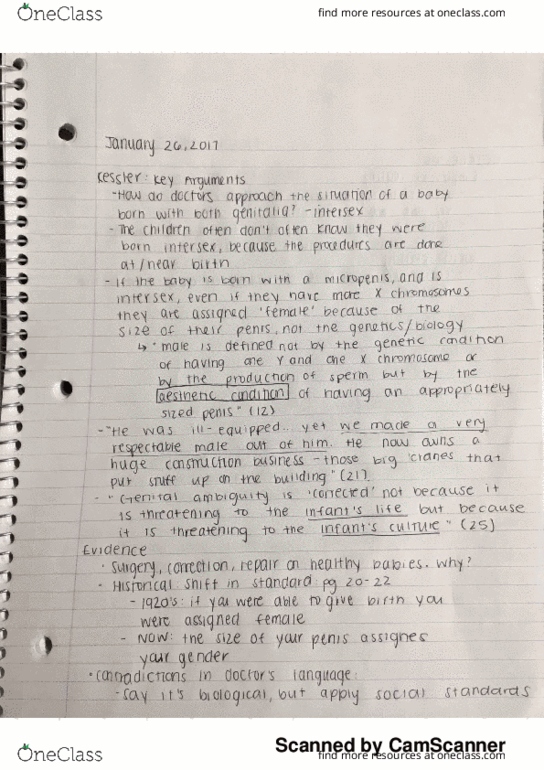 OneClass
find more resources at oneclass.com
January 26, 2017
Kessler: Key Arguments
-How do doctors approach the situation of a baby
born with both genitalia? -intersex
- The children often don't often know they were
born intersex, because the procedures are done
at/near birth
- If the baby is born with a micropenis, and is
intersex, even if they have male X chromosomes
they are assigned 'female' because of the
size of their penis, not the genetics/biology
↳ "male is defined not by the genetic condition
of having one Y and one X chromosome or
by the production of sperm but by the
aesthetic condition of having an appropriately
sized penis" (12)
-"He was ill-equipped.. yet we made a very
respectable male out of him. He now owns a
huge construction business - those big 'cranes that
put stuff up on the building" (21)
- "Genital ambiguity is 'corrected' not because it
is threatening to the infant's life but because
it is threatening to the infant's culture" (25)
Evidence
• Surgery, correction, repair on healthy babies. Why?
• Historical shift in standard: pg 20-22
- 1920's: if you were able to give birth you
were assigned female
- NOW: the size of your penis assignes
your gender
• contradictions in doctor's language:
-say it's biological, but apply social standards
Scanned by CamScanner
OneClass
find more resources at oneclass.com